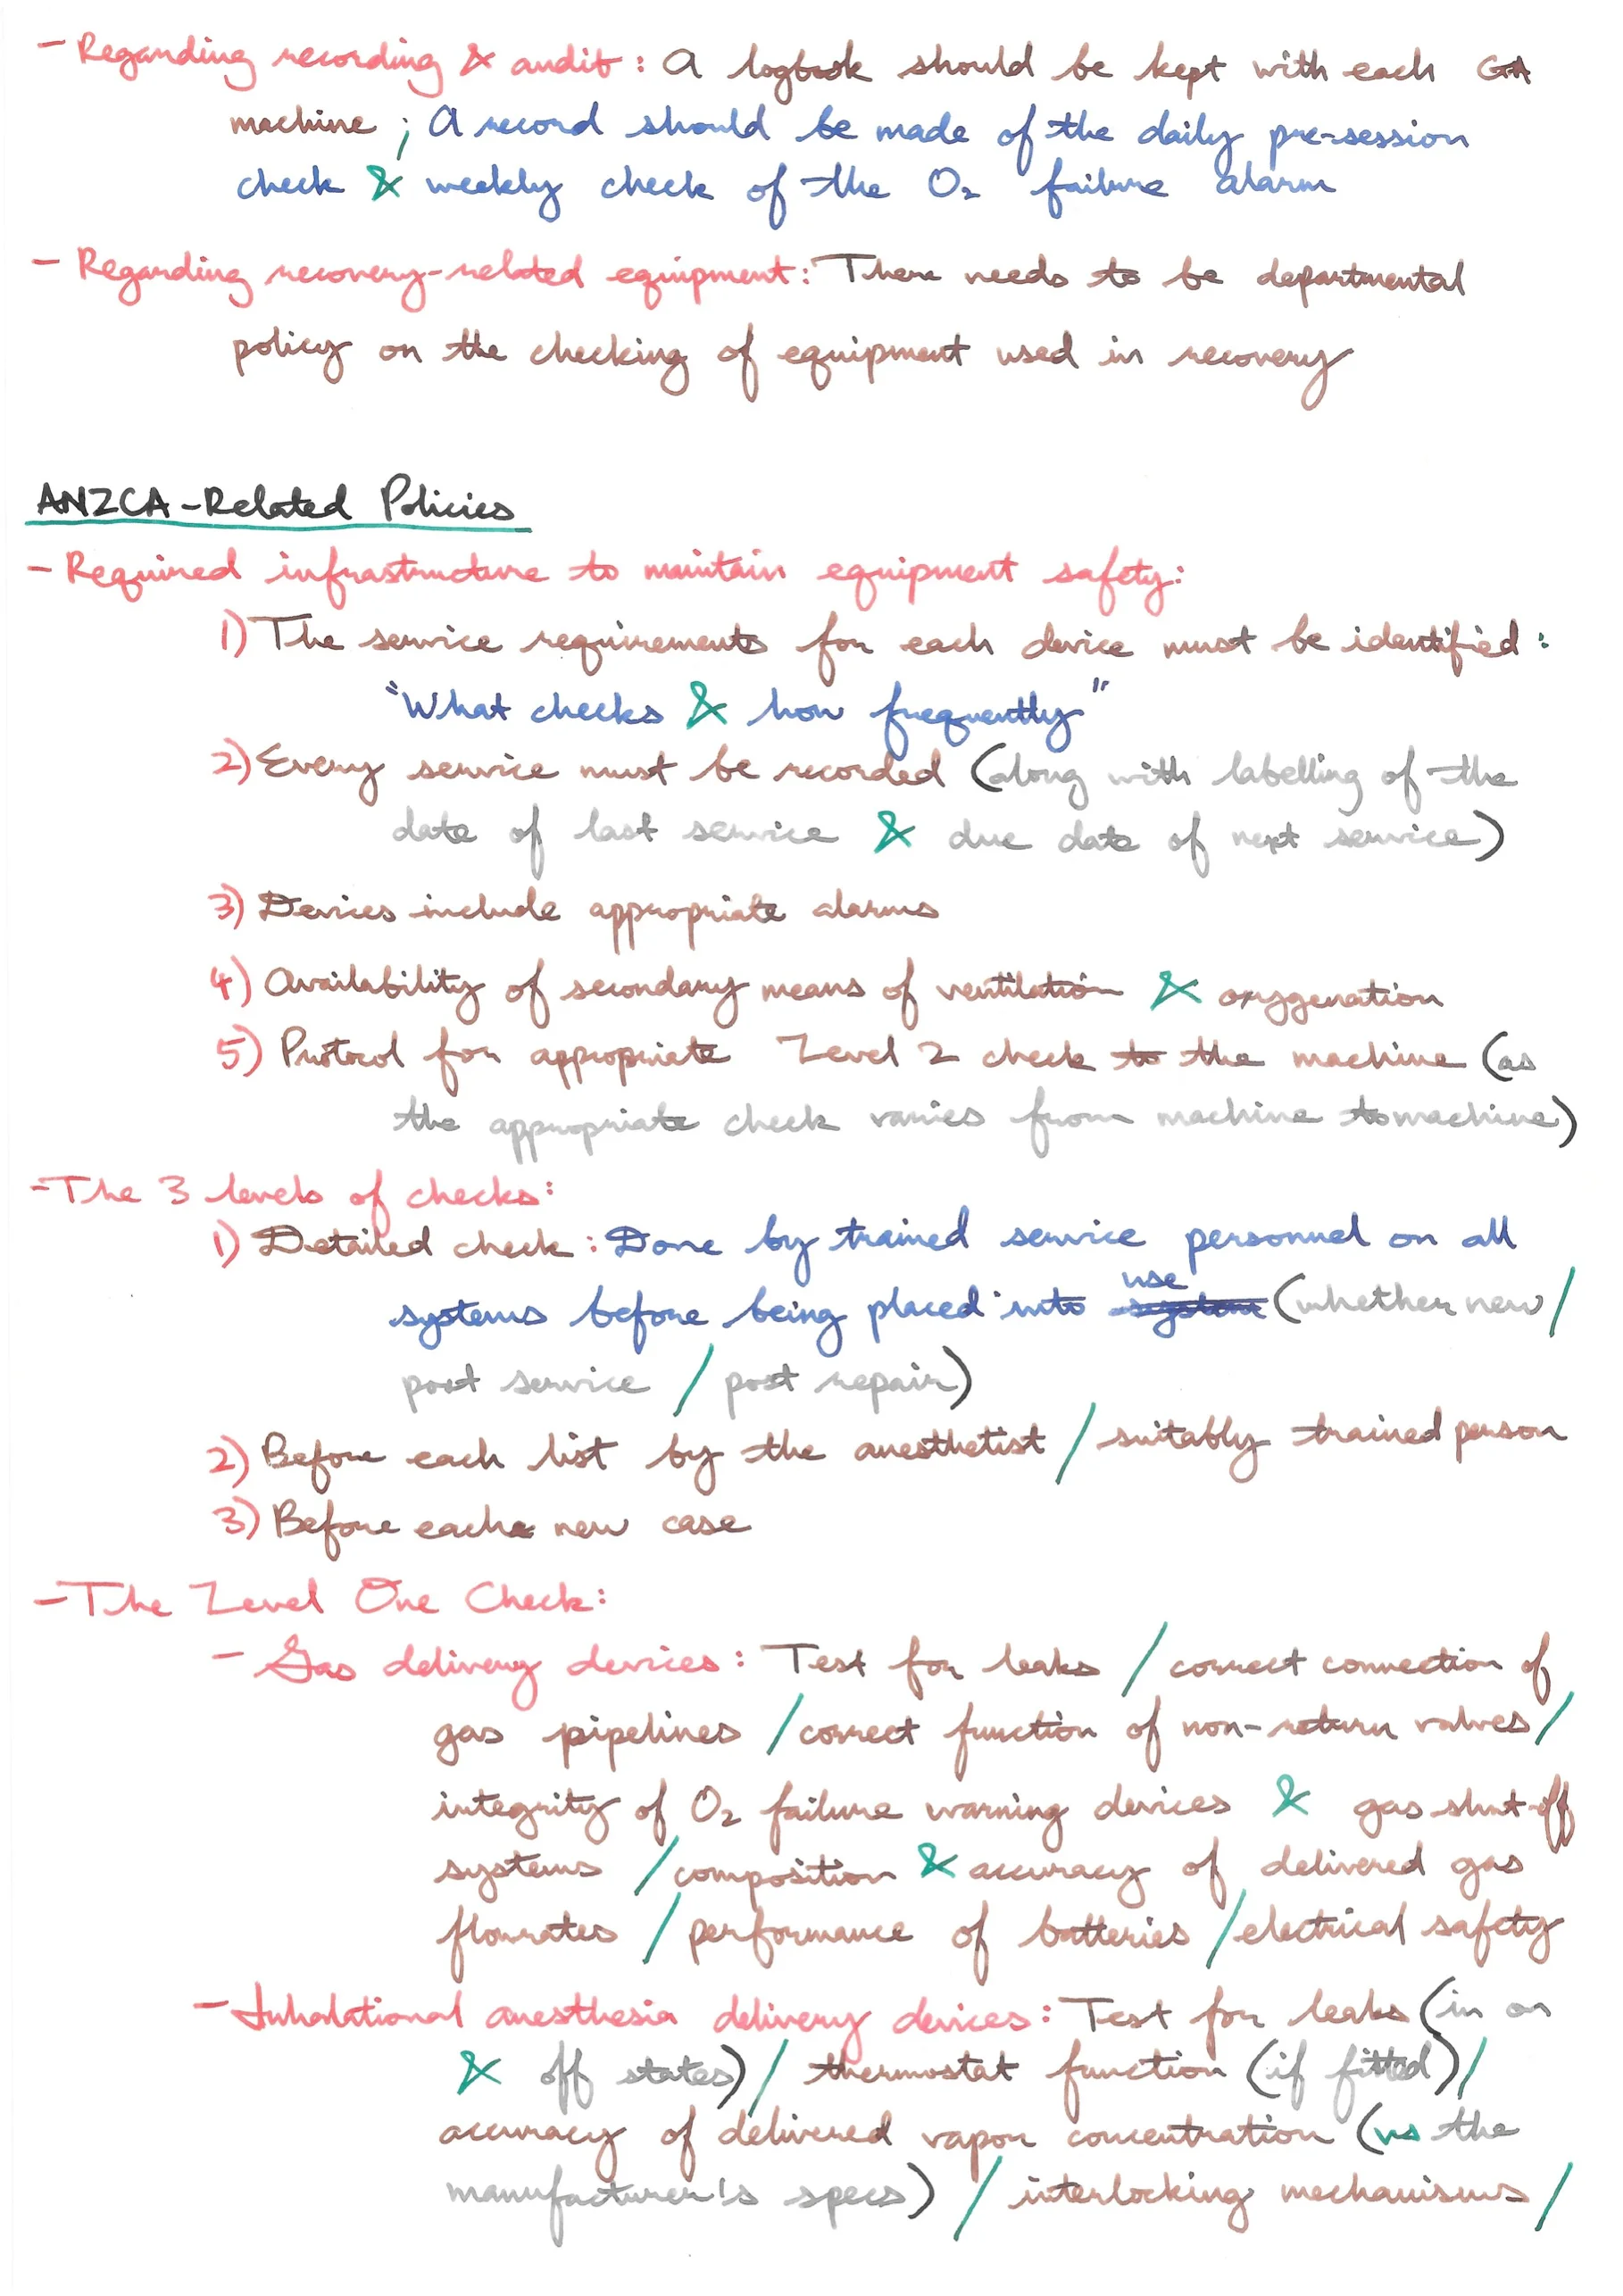 - Regarding recording & audit: A logbook should be kept with each GA
machine; A record should be made of the daily pre-session
check & weekly check of the O₂ failure alarm
- Regarding recovery-related equipment: There needs to be departmental
policy on the checking of equipment used in recovery
ANZCA-Related Policies
- Required infrastructure to maintain equipment safety:
1) The service requirements for each device must be identified:
"What checks & how frequently"
2) Every service must be recorded (along with labelling of the
date of last service & due date of next service)
3) Devices include appropriate alarms
4) Availability of secondary means of ventilation & oxygenation
5) Protocol for appropriate Level 2 check to the machine (as
the appropriate check varies from machine to machine)
- The 3 levels of checks:
1) Detailed check: Done by trained service personnel on all
systems before being placed into use (whether new /
post service / post repair)
2) Before each list by the anesthetist / suitably trained person
3) Before each new case
- The Level One Check:
- Gas delivery devices: Test for leaks / correct connection of
gas pipelines / correct function of non-return valves /
integrity of O₂ failure warning devices & gas shut-off
systems / composition & accuracy of delivered gas
flowrates / performance of batteries / electrical safety
- Inhalational anesthesia delivery devices: Test for leaks (in on
& off states) / thermostat function (if fitted) /
accuracy of delivered vapor concentration (vs the
manufacturer's specs) / interlocking mechanisms /